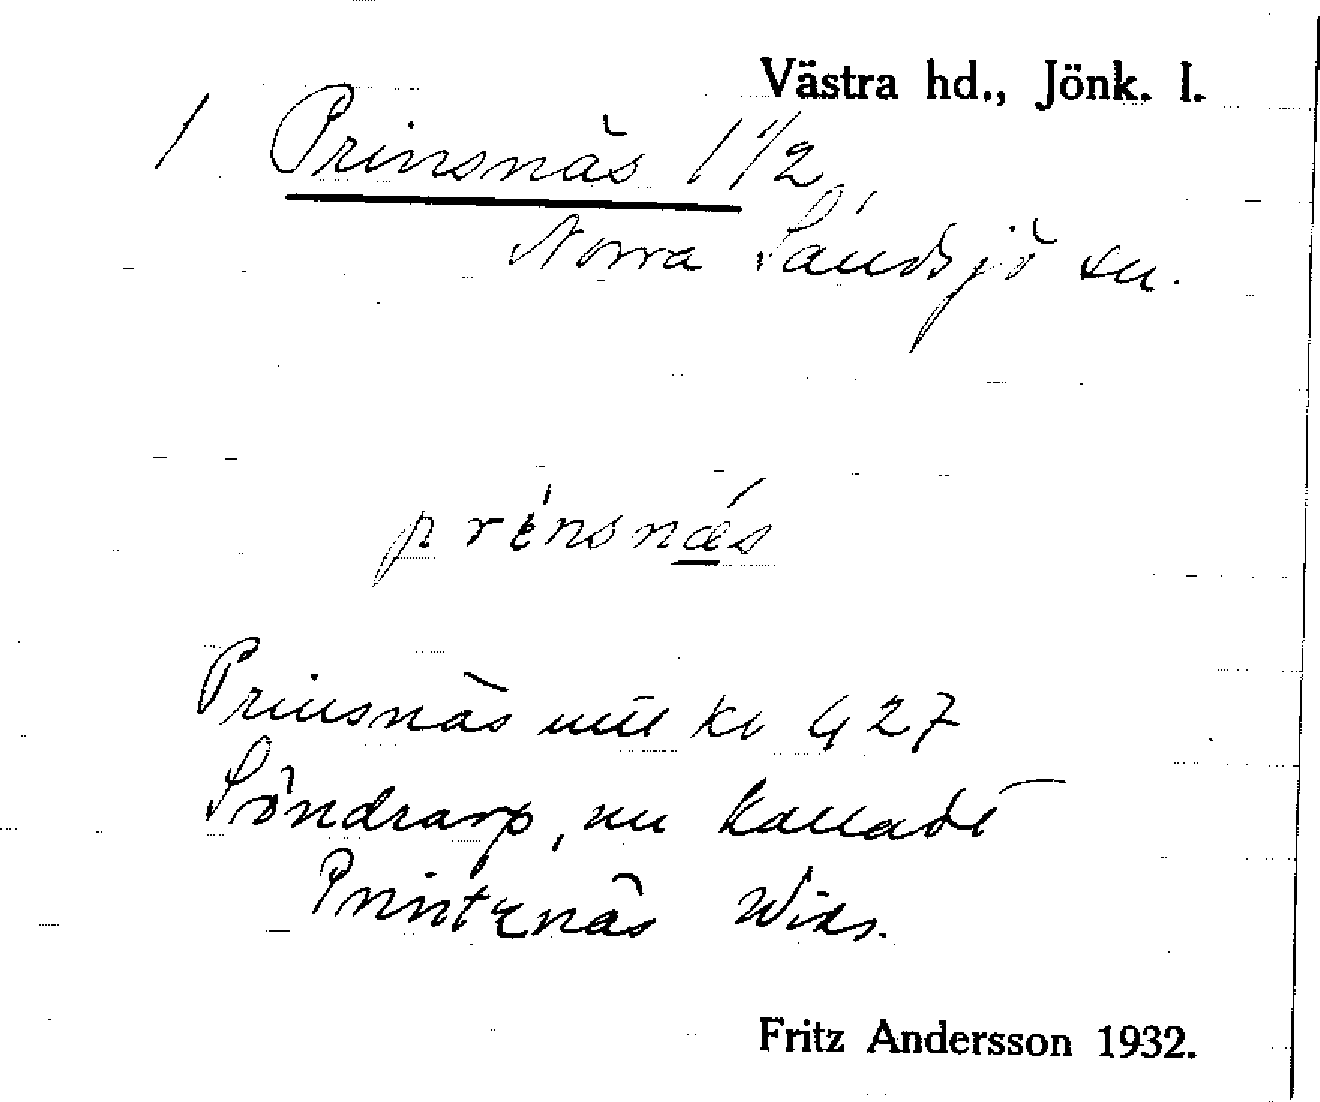 Västra hd., Jönk. l.
1 Prinsnäs 1 1/2
Norra Sandsjö sn.
prénsnæ̲s
Prinsnäs 427
Söndrarp, nu kalladt
Printznäs Wids.
Fritz Andersson 1932.